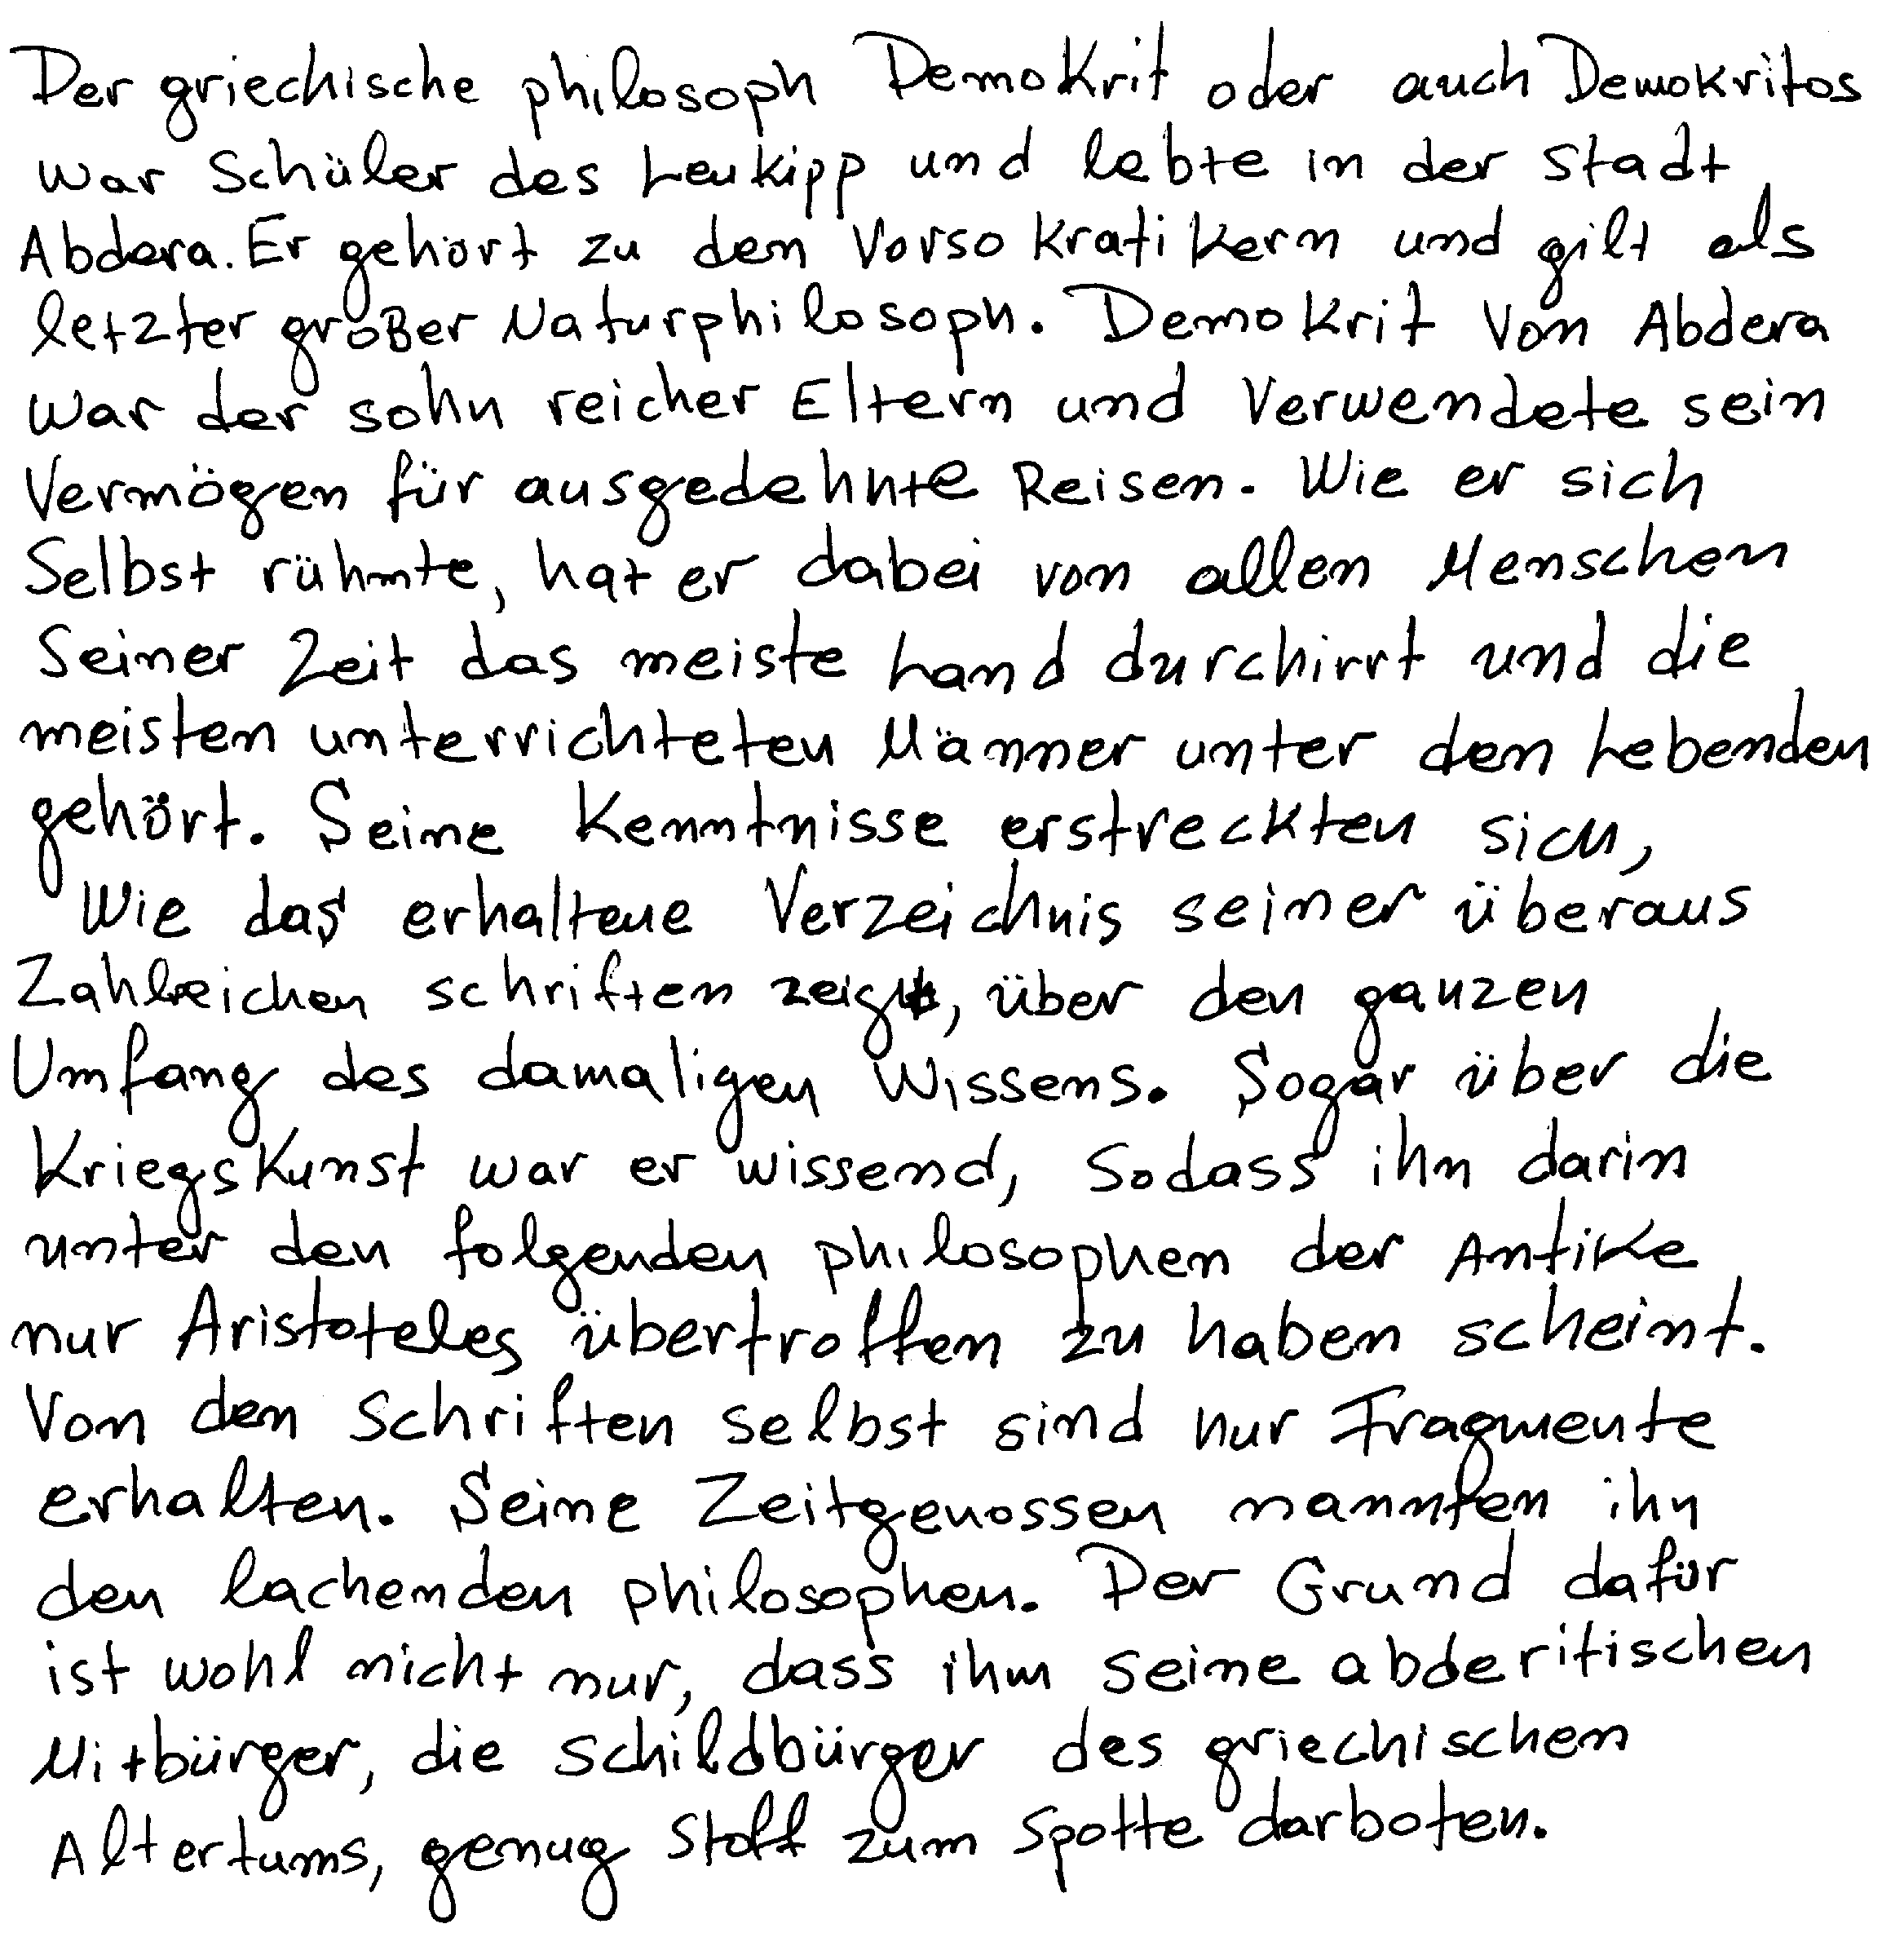 Der griechische Philosoph Demokrit oder auch Demokritos
war Schüler des Leukipp und lebte in der Stadt
Abdera. Er gehört zu den Vorsokratikern und gilt als
letzter großer Naturphilosoph. Demokrit von Abdera
war der Sohn reicher Eltern und verwendete sein
Vermögen für ausgedehnte Reisen. Wie er sich
selbst rühmte, hat er dabei von allen Menschen
seiner Zeit das meiste Land durchirrt und die
meisten unterrichteten Männer unter den Lebenden
gehört. Seine Kenntnisse erstreckten sich,
wie das erhaltene Verzeichnis seiner überaus
zahlreichen Schriften zeigt, über den ganzen
Umfang des damaligen Wissens. Sogar über die
Kriegskunst war er wissend, sodass ihn darin
unter den folgenden Philosophen der Antike
nur Aristoteles übertroffen zu haben scheint.
Von den Schriften selbst sind nur Fragmente
erhalten. Seine Zeitgenossen nannten ihn
den lachenden Philosophen. Der Grund dafür
ist wohl nicht nur, dass ihm seine abderitischen
Mitbürger, die Schildbürger des griechischen
Altertums, genug Stoff zum Spotte darboten.